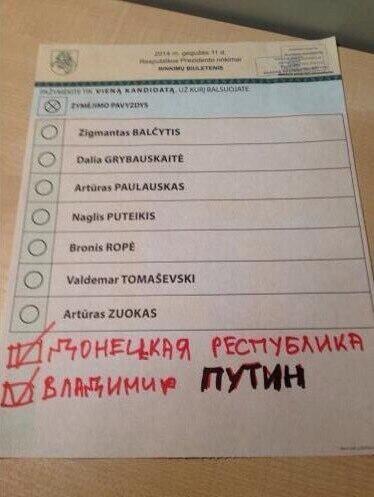 2014 m. gegužės 11 d.
Respublikos Prezidento rinkimai
RINKIMŲ BIULETENIS
PAŽYMĖKITE TIK VIENĄ KANDIDATĄ, UŽ KURĮ BALSUOJATE
ŽYMĖJIMO PAVYZDYS
Zigmantas BALČYTIS
Dalia GRYBAUSKAITĖ
Artūras PAULAUSKAS
Naglis PUTEIKIS
Bronis ROPĖ
Valdemar TOMAŠEVSKI
Artūras ZUOKAS
ДОНЕЦКАЯ РЕСПУБЛИКА
ВЛАДИМИР ПУТИН